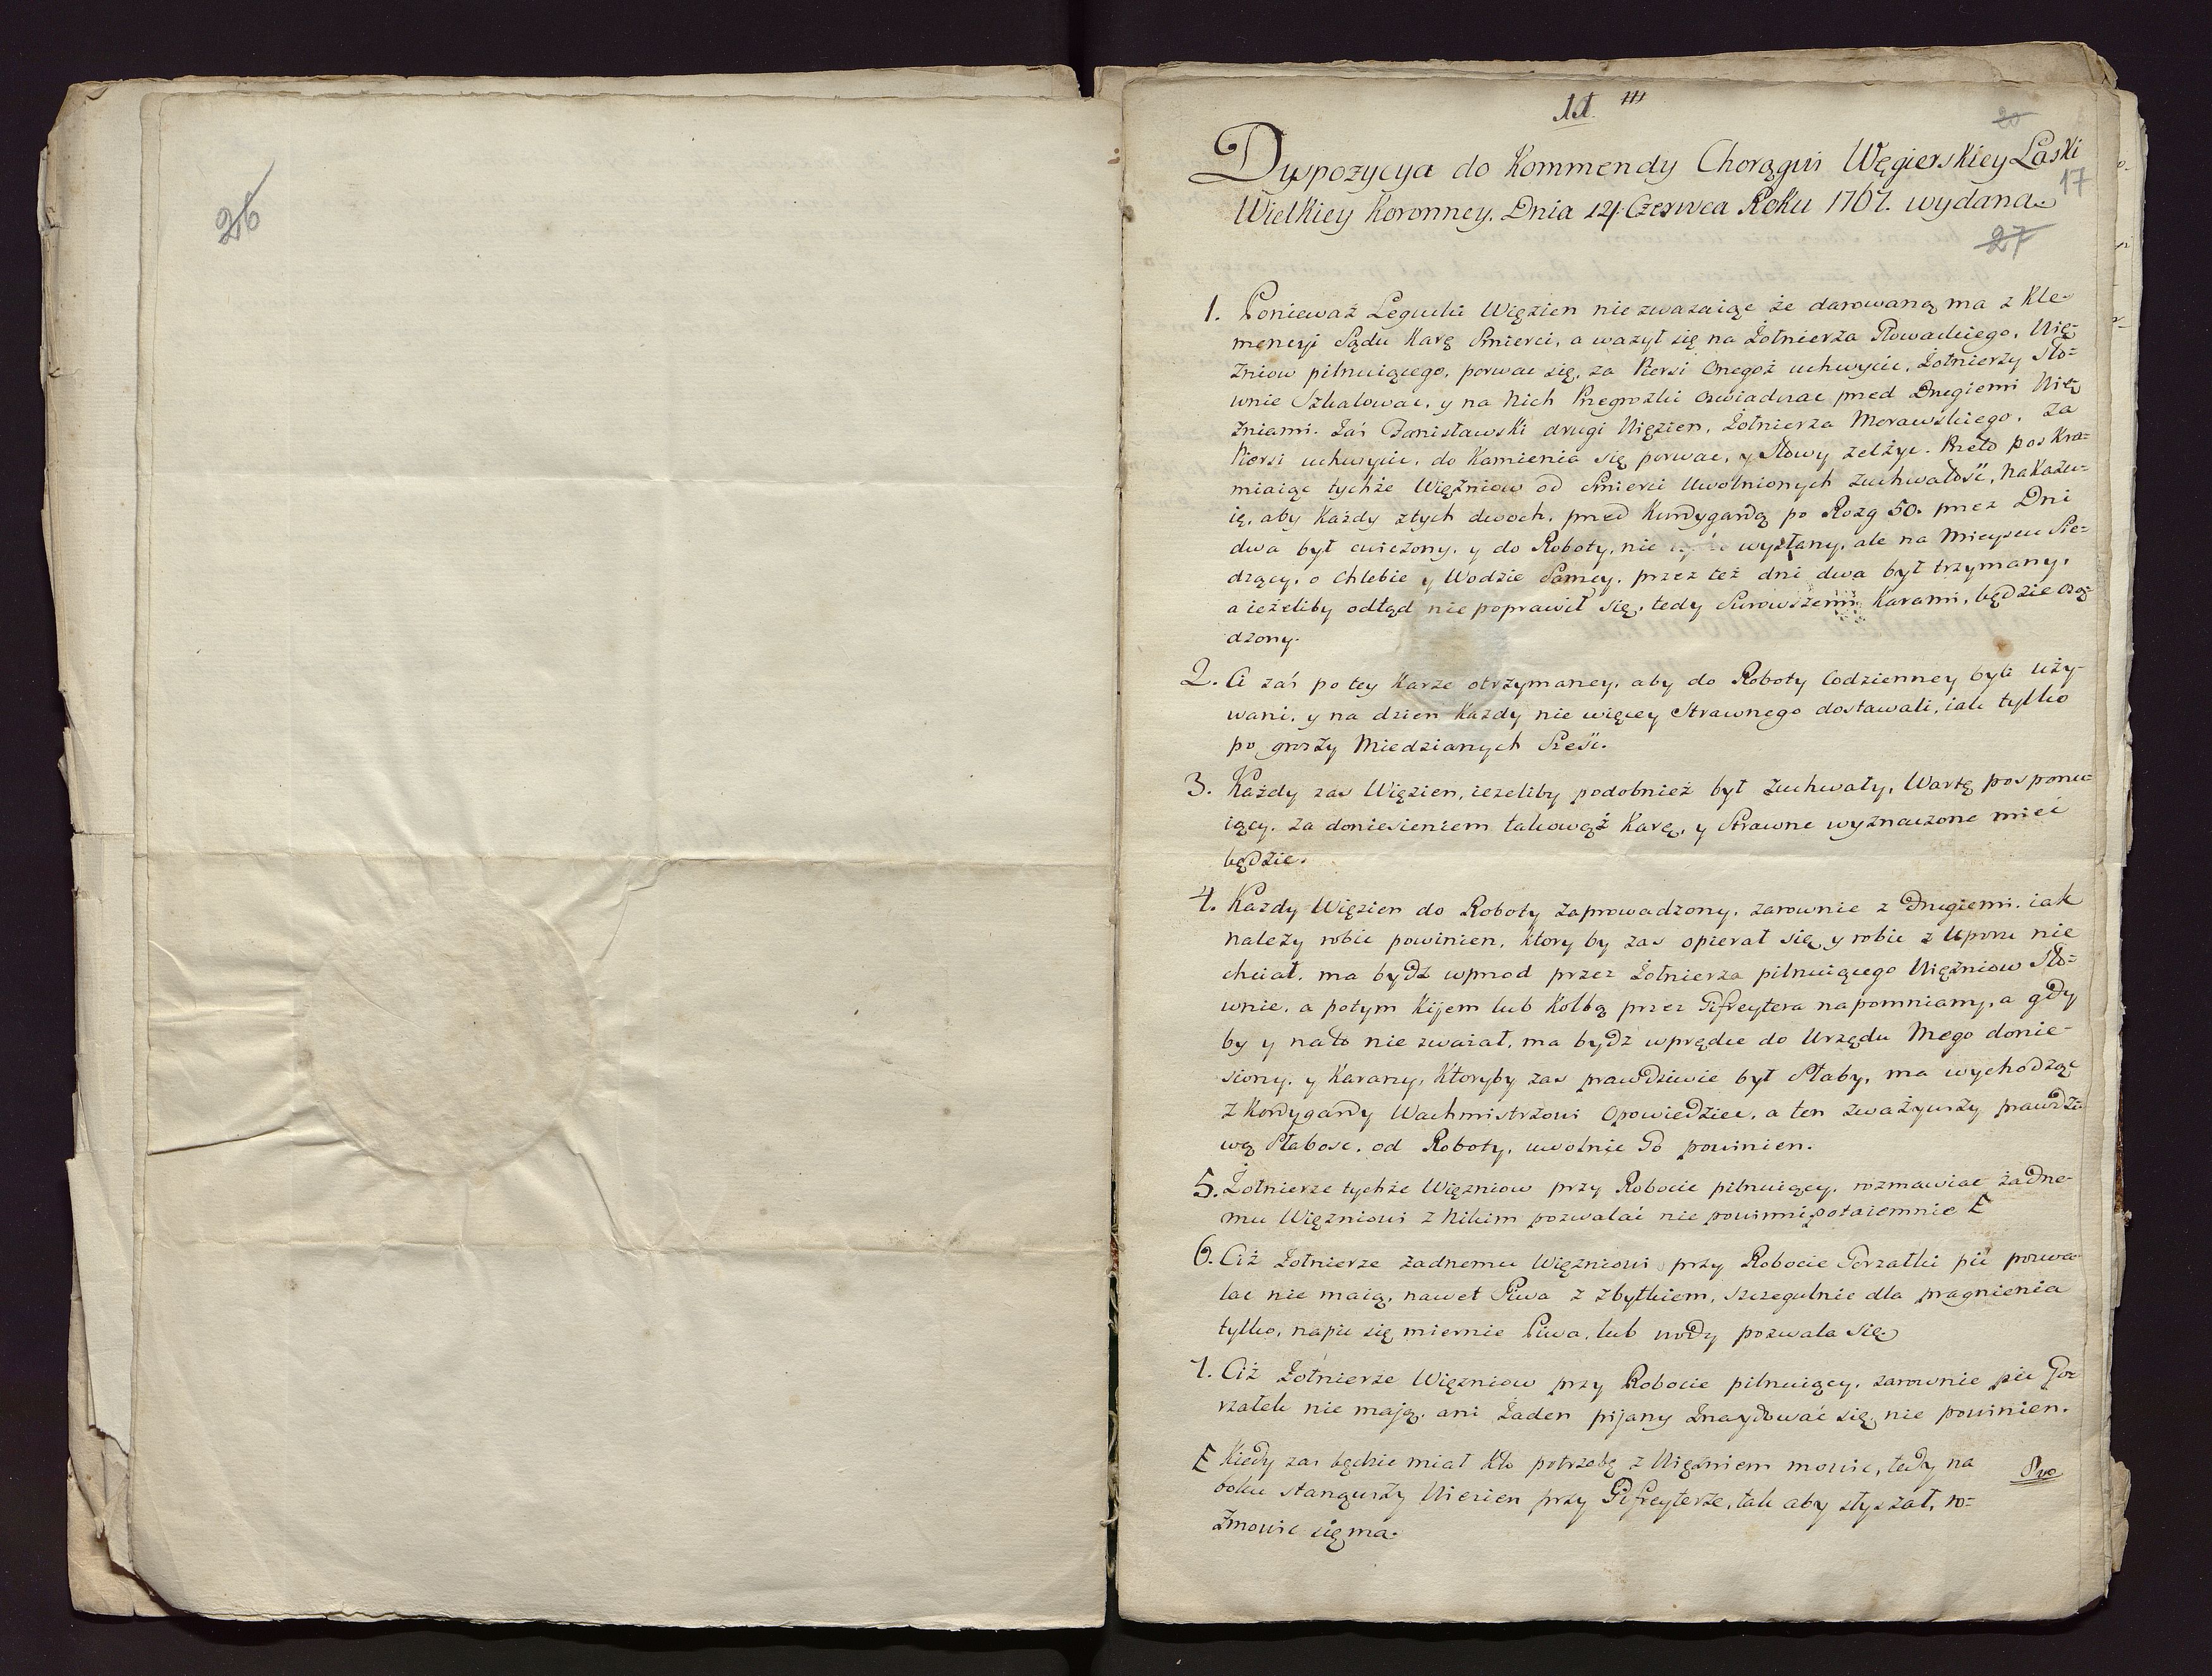 26
11.
20
Dyspozycya do Kommendy Chorągwi Węgierskiey Laski
17
Wielkiey Koronney. Dnia 14 Czerwca Roku 1767. wydana
27
1. Ponieważ Więzien nie zwazaiąc że darowaną ma z Kle-
mencyi Sądu Karę Smierci, a ważył się na Żołnierza Słowackiego, Wię-
zniow pilnuiącego, porwac się, za Piersi Onegoż uchwycic, Żołnierzy Sło-
wnie Szkalowac, y na Nich Pregrozki oswiadczac pred Drugiemi Wię-
zniami. Zaś Stanisławski drugi Więzien, Żołnierza Morawskiego, za
Piersi uchwycic, do Kamienia się porwac, y Słowy zelżyc. Preto poskra-
miaiąc tychże Więzniow od Smierci Uwolnionych zuchwałość, nakazu-
ię, aby Każdy ztych dwoch, pred Kurdygardą po Rozg 50. prez Dni
dwa był cwiczony, y do Roboty, nie wysłany, ale na Mieyscu Sie-
dzący, o Chlebie y Wodzie Samey, przez też dni dwa był trzymany,
a ieżeliby odtąd nie poprawił się, tedy Surowszemi Karami, będzie osą-
dzony.
2. Ci zaś po tey Karze otrzymaney, aby do Roboty Codzienney byli uży-
wani, y na dzien Każdy nie więcey Strawnego dostawali, iak tylko
po groszy Miedzianych Sześć.
3. Każdy zas Więzien, ieżeliby podobnież był Zuchwały, Wartę posponu-
iący, za doniesieniem takowąż Karę, y Strawne wyznaczone mieć
będzie.
4. Kazdy Więzien do Roboty zaprowadzony, zarownie z Drugiemi, iak
należy robic powinien, ktory by zas opierał się, y robic z Uporu nie
chciał, ma bydz wprzod przez Żołnierza pilnuiącego Więzniow Sło-
wnie, a potym Kijem lub Kolbą przez Gifreytera napomniany, a gdy
by y nato nie zwaiał, ma bydz wprędce do Urzędu Mego donie-
siony, y Karany, Ktoryby zas prawdziwie był Słaby, ma wychodząc
z Kordygardy Wachmistrzowi Opowiedziec, a ten zważywszy prawdzi-
wą Słabosc, od Roboty, uwolnic Go powinien.
5. Żołnierze tychże Więzniow przy Robocie pilnuiący, rozmawiac żadne-
mu Więzniowi z Nikim pozwalać nie powinni, potaiemnie E
6. Ciż Żołnierze żadnemu Więzniowi przy Robocie Gorzałki pić pozwa-
lac nie maią, nawet Piwa z zbytkiem, szczegulnie dla pragnienia
tylko, napic się miernie Piwa, lub wody pozwala się.
7. Ciż Żołnierze Więzniow przy Robocie pilnuiący, zarownie pic Go-
rzałek nie mają, ani Żaden pijany znaydować się, nie powinien.
E Kiedy zas będzie miał Kto potrzebę z Więzniem mowic, tedy na
boku stanąwszy Wiezien przy Gifreyterze, tak aby słyszał, ro-
zmowic się ma.